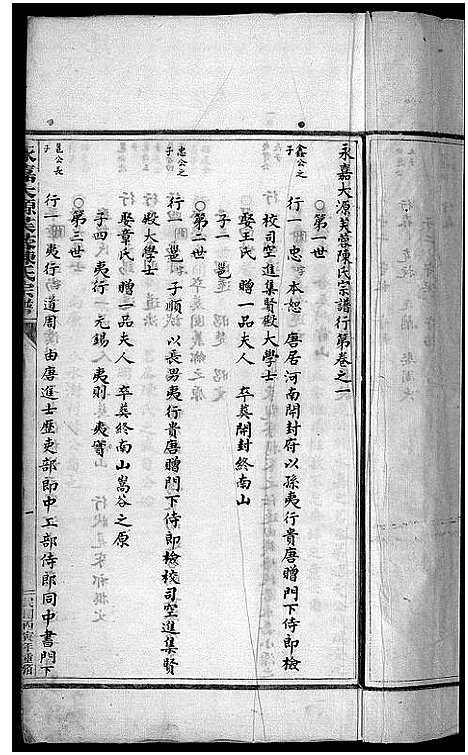 永嘉大源芙蓉陳氏宗譜行第卷之一
○第一世
鑫公之子
行一 忠 本恕 唐居河南開封府以孫夷行貴唐贈門下侍郎檢
校司空進集賢殿大學士
娶王氏 贈一品夫人 卒葬開封終南山
子一 邕
○第二世
忠公之子
行一 邕 子順 以長男夷行貴唐贈門下侍郎檢校司空進集賢
殿大學士
娶章氏 贈一品夫人 卒葬終南山嵩谷之原
子四 夷行 元錫 夷則 夷實
○第三世
邕公長子
行一 夷行 道周 由唐進士歷吏部郎中工部侍郎同中書門下
永嘉大源芙蓉陳氏宗譜
一
民國丙寅年重修